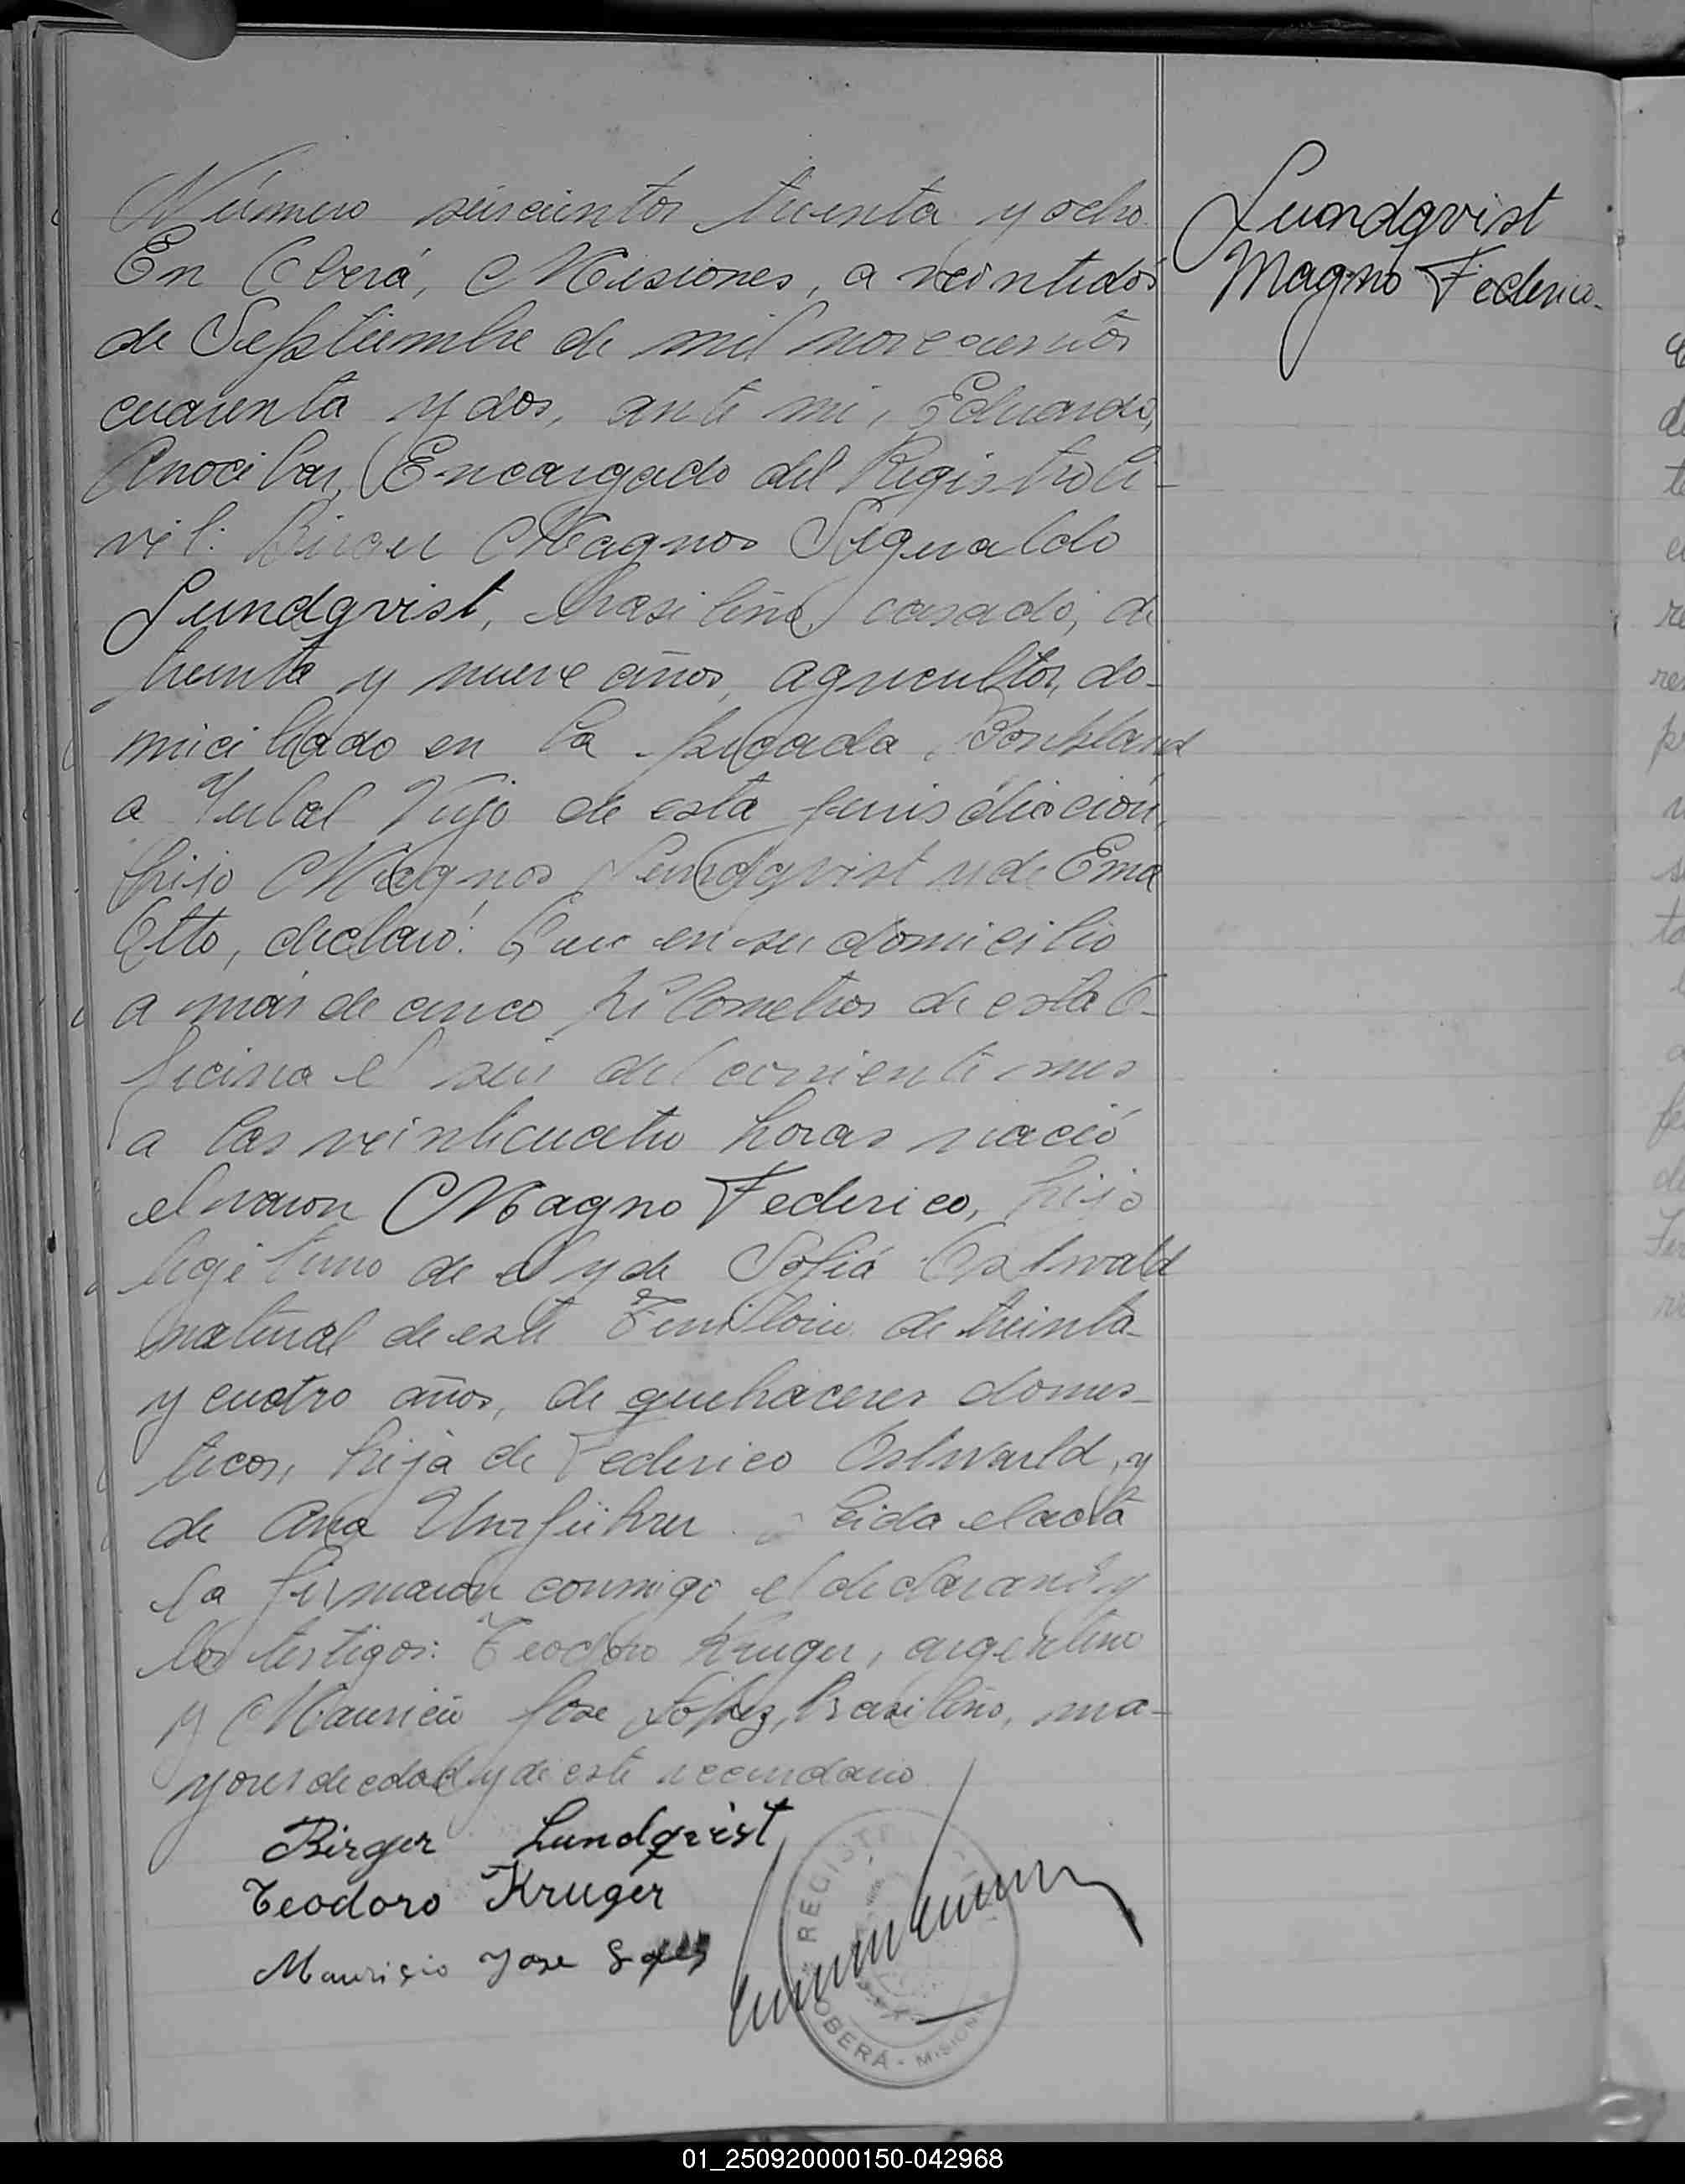 Número seiscientos treinta y ocho.
En Oberá, Misiones, a veintidós
de Septiembre de mil novecientos
cuarenta y dos, ante mi, Eduardo
Anocibar, Encargado del Registro Ci-
vil: Birger Magnos Sigualdo
Lundqvist, brasileño, casado, de
treinta y nueve años, agricultor, do-
miciliado en la picada Bonpland
a Yerbal Viejo de esta jurisdicción,
hijo Magnos Lundqvist y de Ema
Otto, declaró: Que en su domicilio
a más de cinco kilometros de esta O-
ficina el seis del corriente mes
a las veinticuatro horas nació
el varon Magno Federico, hijo
legitimo de el y de Sofía Ostwald
natural de este Territorio de treinta
y cuatro años, de quehaceres domes-
ticos, hija de Federico Ostwald, y
de Ana . Leida el acta
la firmaron conmigo el declarante y
los testigos: Teodoro Kruger, argentino
y Mauricio Jose López, brasileño, ma-
yores de edad y de este vecindario.
Birger Lundqvist
Teodoro Kruger
Mauricio Jose
REGISTR
OBERÁ - MISIONES
Lundqvist
Magno Federico.
01_250920000150-042968